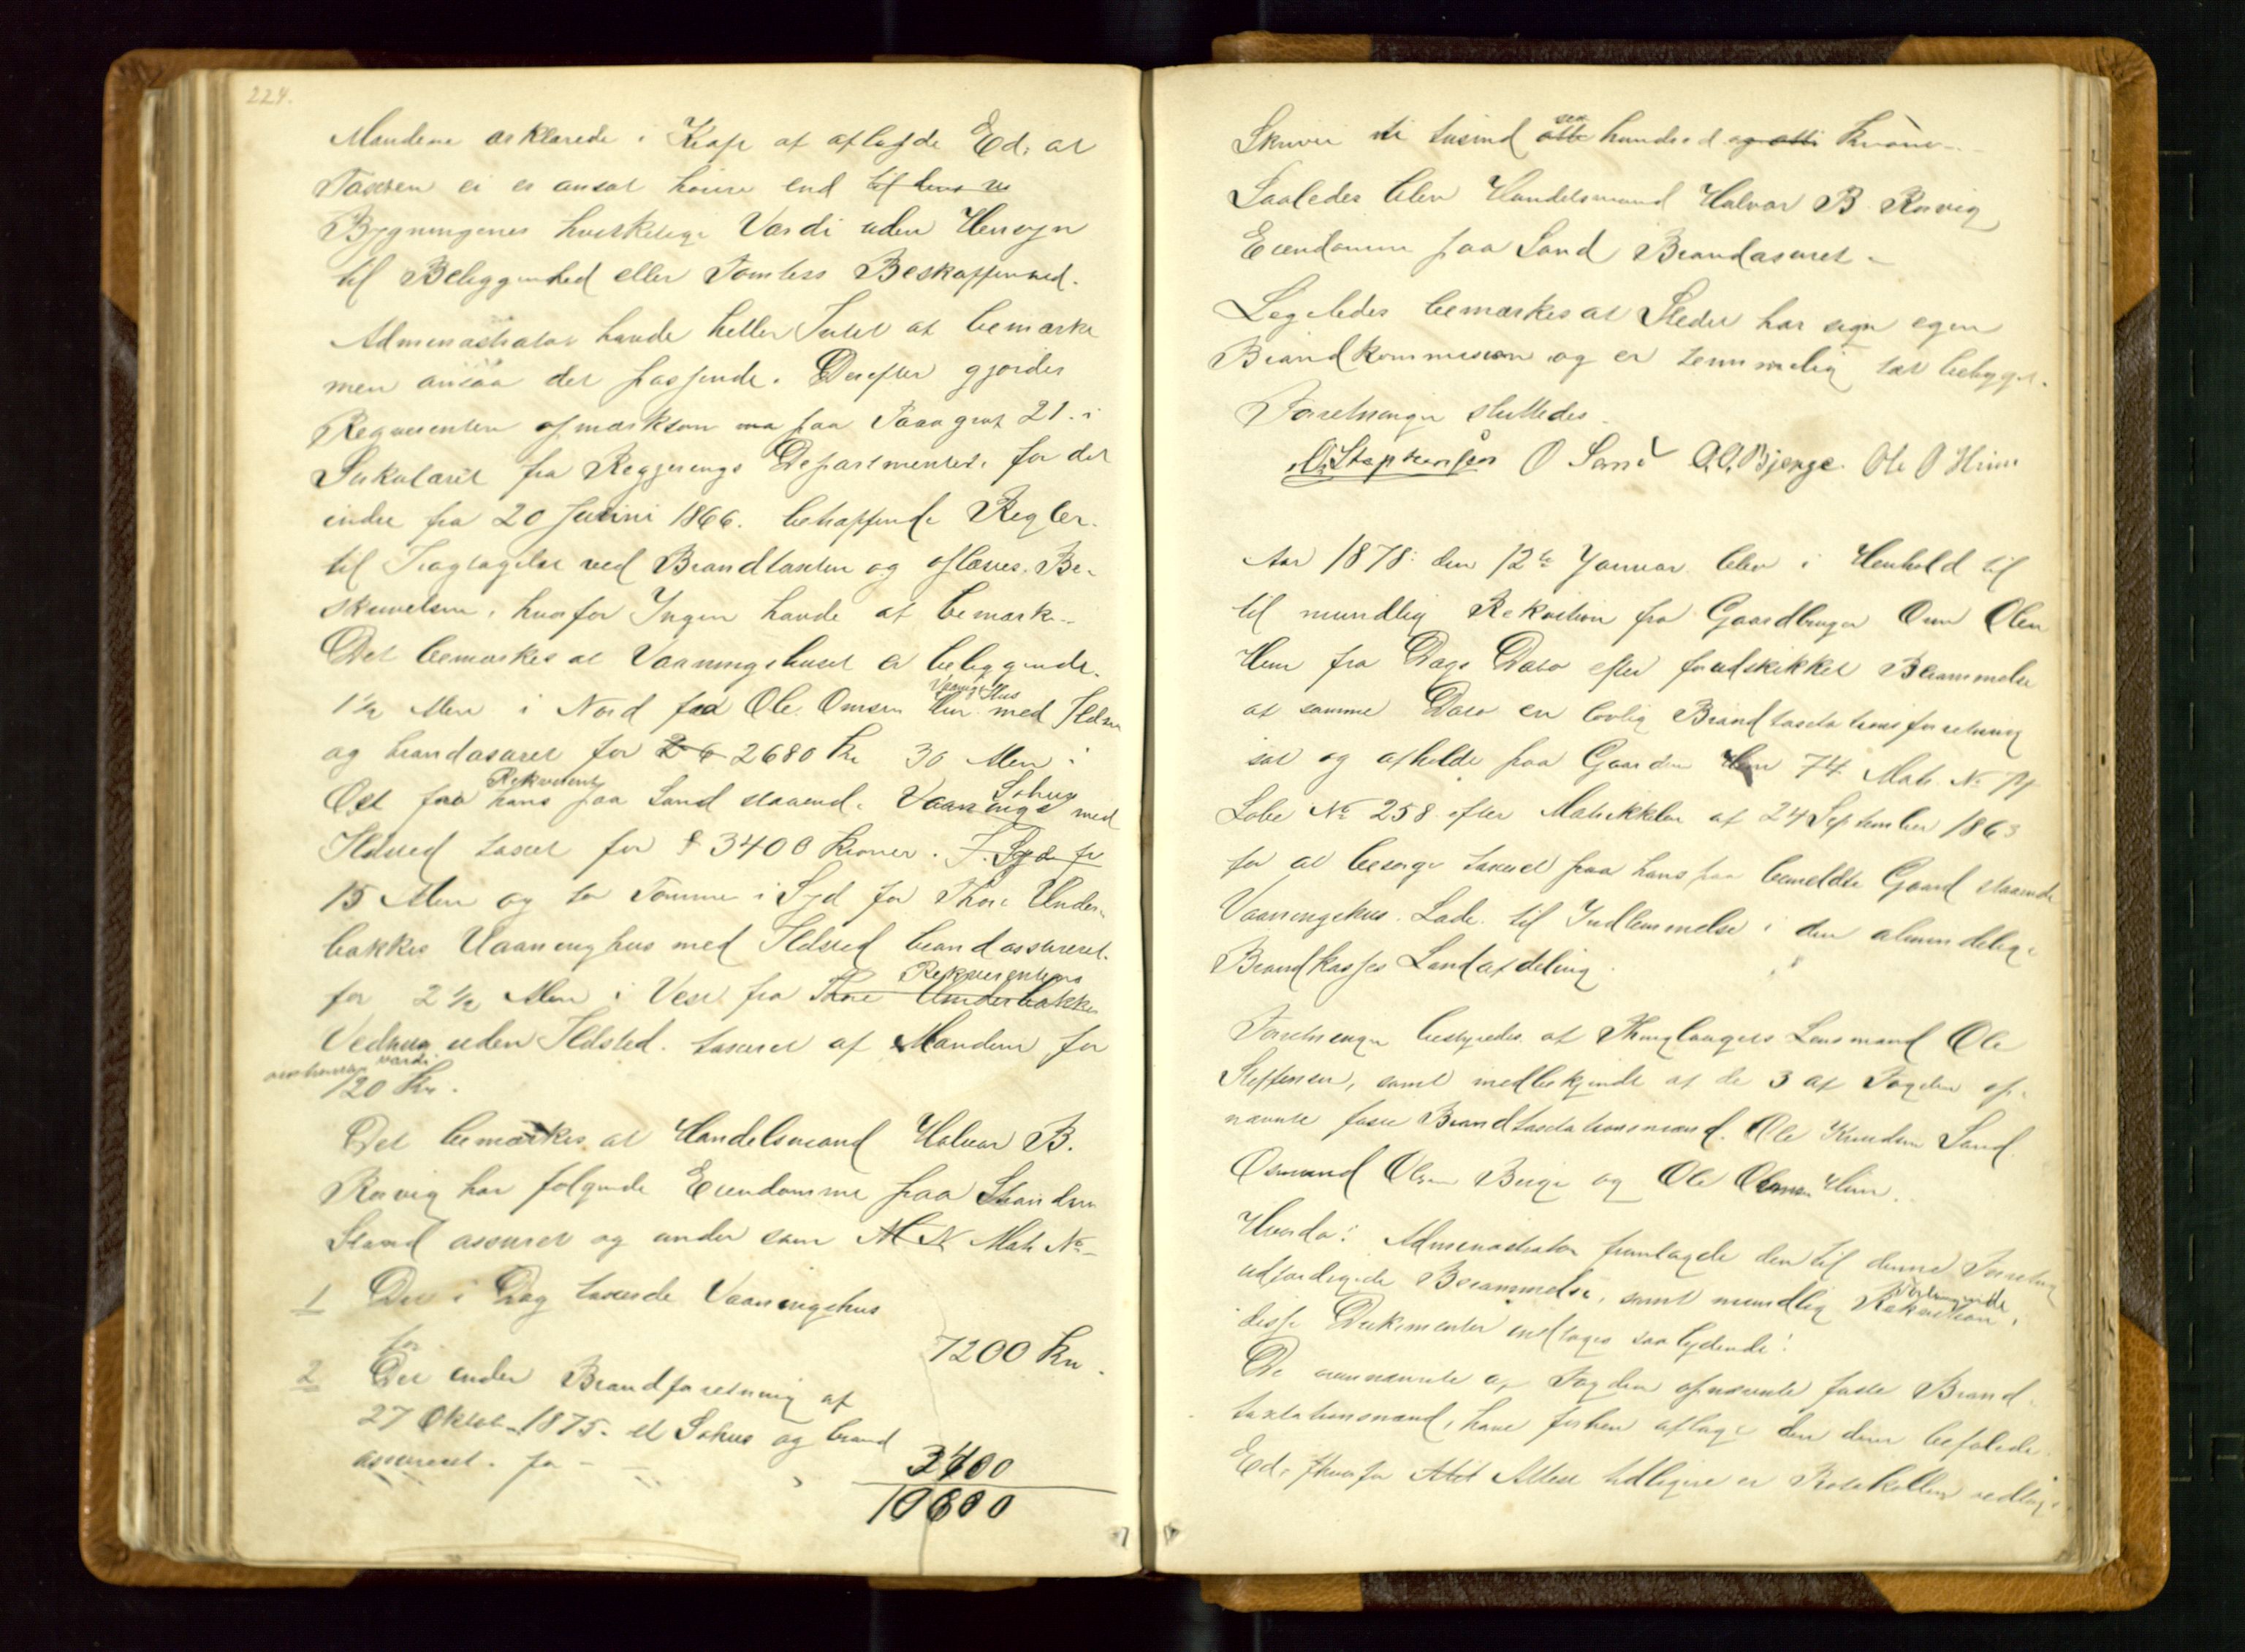 224.
Mændene erklærede i Kraft af aflagde Ed, at
Taxten ei er ansat høiere end til hans V
Bygningenes Værdi uden Hensyn
til Beliggenhed eller Tomtens Beskaffenhed.
Administrator havde heller Intet at bemærke
men ansaa det passende. Derefter gjordes
Reqvirenten opmærksom paa Paragraf 21. i
Sirkulæret fra Regjerings Departementet for det
indre fra 20 Juni 1866. Regler
til Iagtagelse ved Brandtaxter og oplæses Be-
skrivelsen, hvorfor Ingen havde at bemærke.
Det bemærkes at Vaaningshuset er beliggende
1½ Alen i Nord fra Ole Omsen Hiim Vaanings Hus med Ildsted
og brandassuret for 2 6 2680 Kr 30 Alen i
Ost fra Rekvirent hans paa Sand staaende Vaanings Søhus med
Ildsted taxeret for 3400 Kroner. I Syd fr
15 Alen og to Tommer i Syd for Thore Under-
bakkes Vaaninghus med Ildsted brandassureret.
for 2½ Alen i Vest fra Thore Underbakke Rekvirentens
Vedhus uden Ildsted. taxeret af Mændene for
værdi
120 Kr.
Det bemærkes at Handelsmand Halvor B.
Røvig har følgende Eiendomme paa Stranden
Sand assuret og under samme Mat No
1 Det i Dag taxerede Vaaningshus
for 7200 Kr.
2 Det under Brandforretning af
27 Oktob. 1875. et Søhus og brand
assureret. for - 3400
10600
Skriver ti tusind otte sex hundred og otti Kroner
Saaledes blev Handelsmand Halvor B. Røvig
Eiendomme paa Sand Brandassuret
Ligeledes bemærkes at Stedet har sign egen
Brandkommission og er temmelig tæt bebygget.
Forretningen sluttedes.
O. Stephensen O Sand O.O. Bjerge. Ole O Hiim
Aar 1878: den 12te Januar blev i Henhold til
til mundlig Rekvition fra Gaardbruger Omn Olsen
Hiim fra Dags Dato efter forudskikket Berammelse
af samme Dato en lovlig Brandtaxtationsforretning
sat og afholdt paa Gaarden Hiim 74 Mat. No 74
Løbe No 258 efter Matrikkelen af 24 September 1863
for at besørge taxeret paa hans paa bemeldte Gaard staaende
Vaaningshus. Lade. til Indlemmelse i den almindelige
Brandkasses Landafdeling
Forretningen bestyredes af Thinglaugets Lensmand Ole
Steffensen, samt medbetjendt af de 3 af Fogden op-
nævnte faste Brandtaxtationsmænd. Ole Knudsen Sand
Osmund Olsen Berge og Ole Omsen Hiim.
Hvorda: Administrator fremlagde den til denne Forretning
udfærdigede Berammelse, samt mundlig Rekvition. Forlangende
disse Dokumenter indtages saa lydende:
De ovennævnte af Fogden opnævnte faste Brand-
taxtationsmænd, have forhen aflagt den dem befalede
Ed, hvorfor Attest tidligere er Protokollen vedlagt.